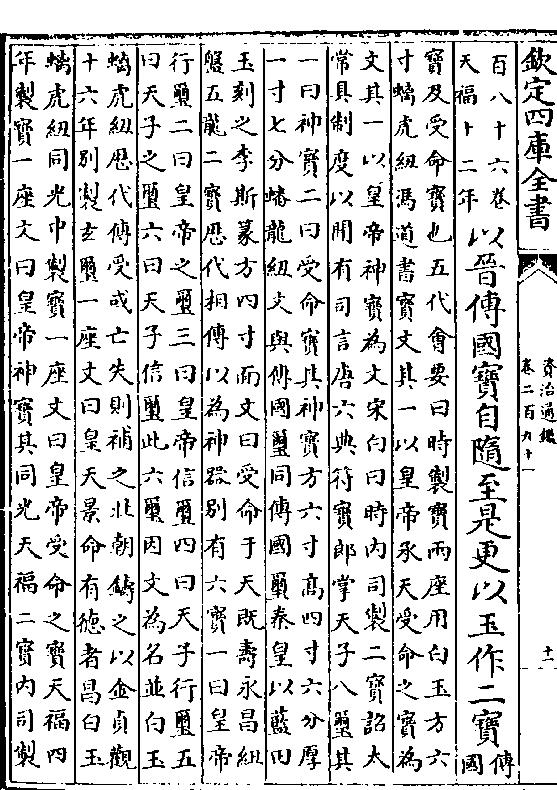 欽定四庫全書
資治通鑑
卷二百九十一
十一
百八十六卷
天福十二年
以晉傳國寶自隨至是更以玉作二寶
傳
國
寶及受命寶也五代會要曰時製寶兩座用白玉方六
寸螭虎紐馮道書寶文其一以皇帝承天受命之寶為
文其一以皇帝神寶為文宋白曰時內司製二寶詔太
常具制度以聞有司言唐六典符寶郎掌天子八璽其
一曰神寶二曰受命寶其神寶方六寸高四寸六分厚
一寸七分蟠龍紐文與傳國璽同傳國璽秦皇以藍田
玉刻之李斯篆方四寸面文曰受命于天既壽永昌紐
盤五龍二寶歷代相傳以為神器別有六寶一曰皇帝
行璽二曰皇帝之璽三曰皇帝信璽四曰天子行璽五
曰天子之璽六曰天子信璽此六璽因文為名並白玉
螭虎紐歷代傳受或亡失則補之北朝鑄之以金貞觀
十六年別製玄璽一座文曰皇天景命有德者昌白玉
螭虎紐同光中製寶一座文曰皇帝受命之寶天福四
年製寶一座文曰皇帝神寶其同光天福二寶內司製